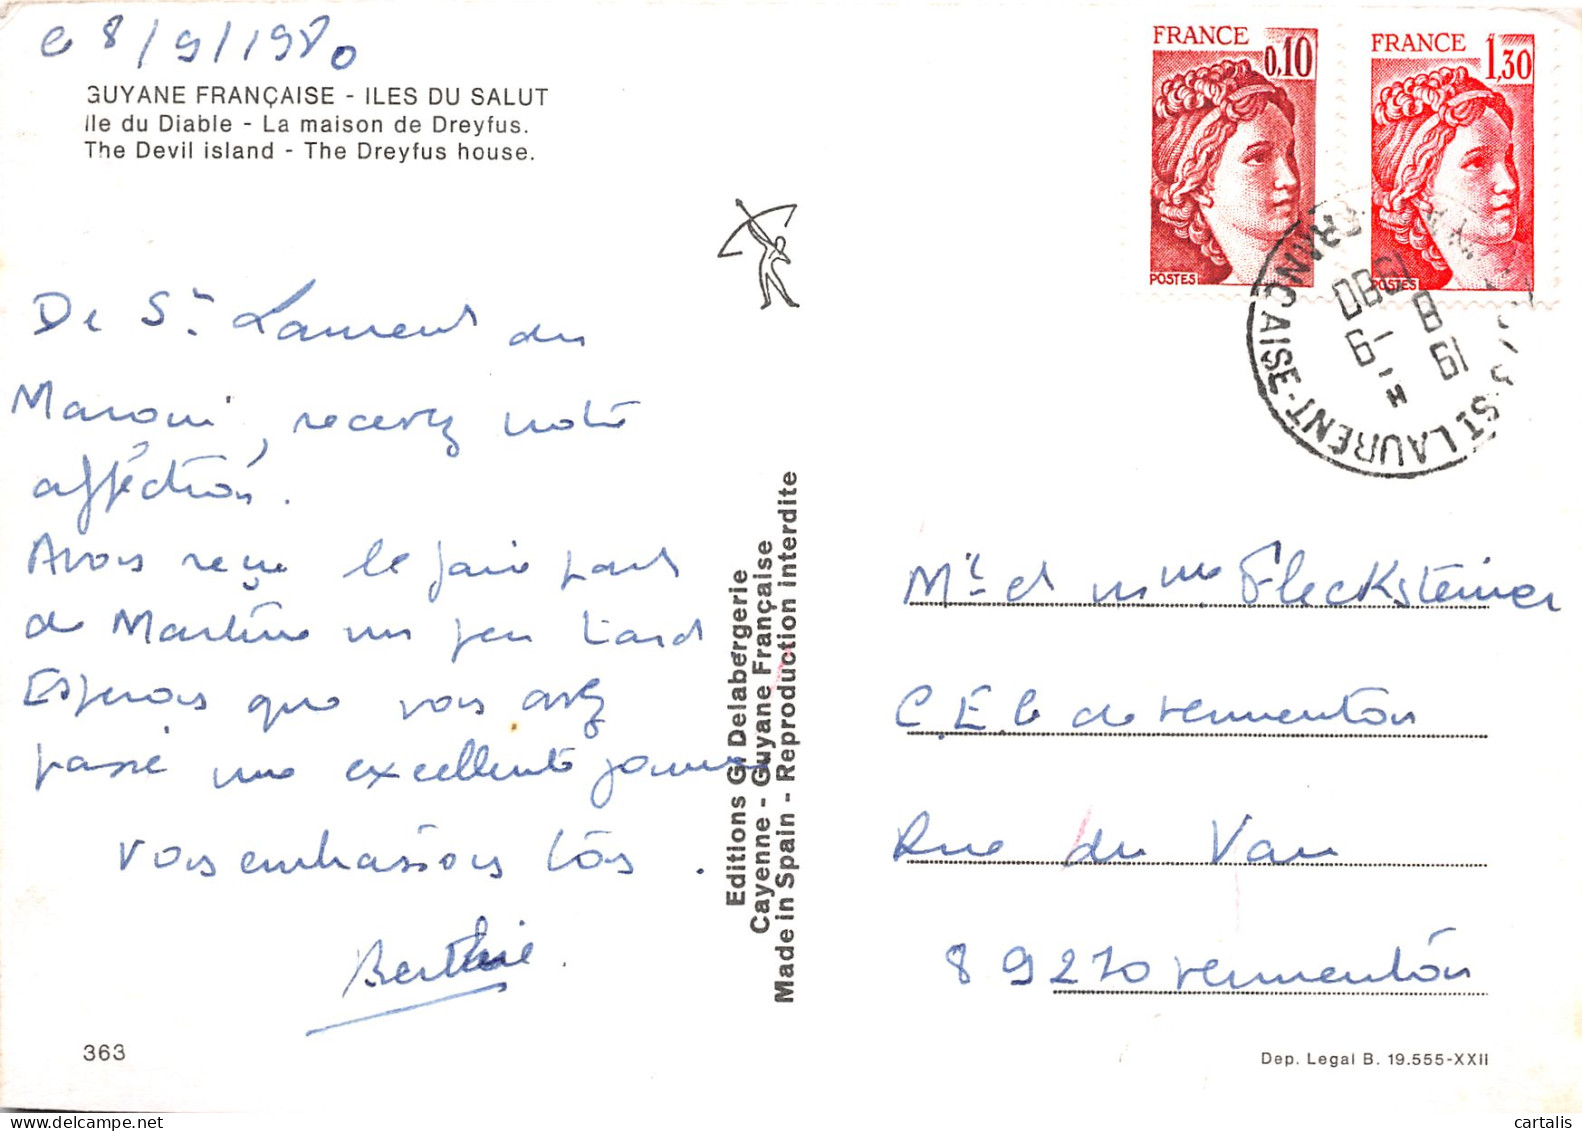 Le 8/9/1980
GUYANE FRANÇAISE - ILES DU SALUT
Ile du Diable - La maison de Dreyfus.
The Devil island - The Dreyfus house.
FRANCE
0,10
POSTES
FRANCE
1,30
POSTES
ST LAURENT - FRANÇAISE
19 H
8 - 9
1980
De St Laurent du
Maroni, recevez notre
afféction.
Avons reçu le faire part
de Martine un peu tard
Esperons que vous avez
passé une excellente journée
Vous embrassons tous.
Editions G. Delabergerie
Cayenne - Guyane Française
Made in Spain - Reproduction interdite
Mr et Mme Flecksteiner
C.E.G de Vermenton
Rue du Vau
89270 Vermenton
363
Dep. Legal B. 19.555-XXII
cartalis